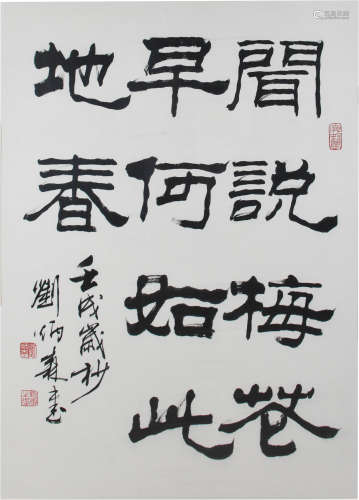 聞說梅花
早何如此
地春
壬戌歲杪
劉炳森書